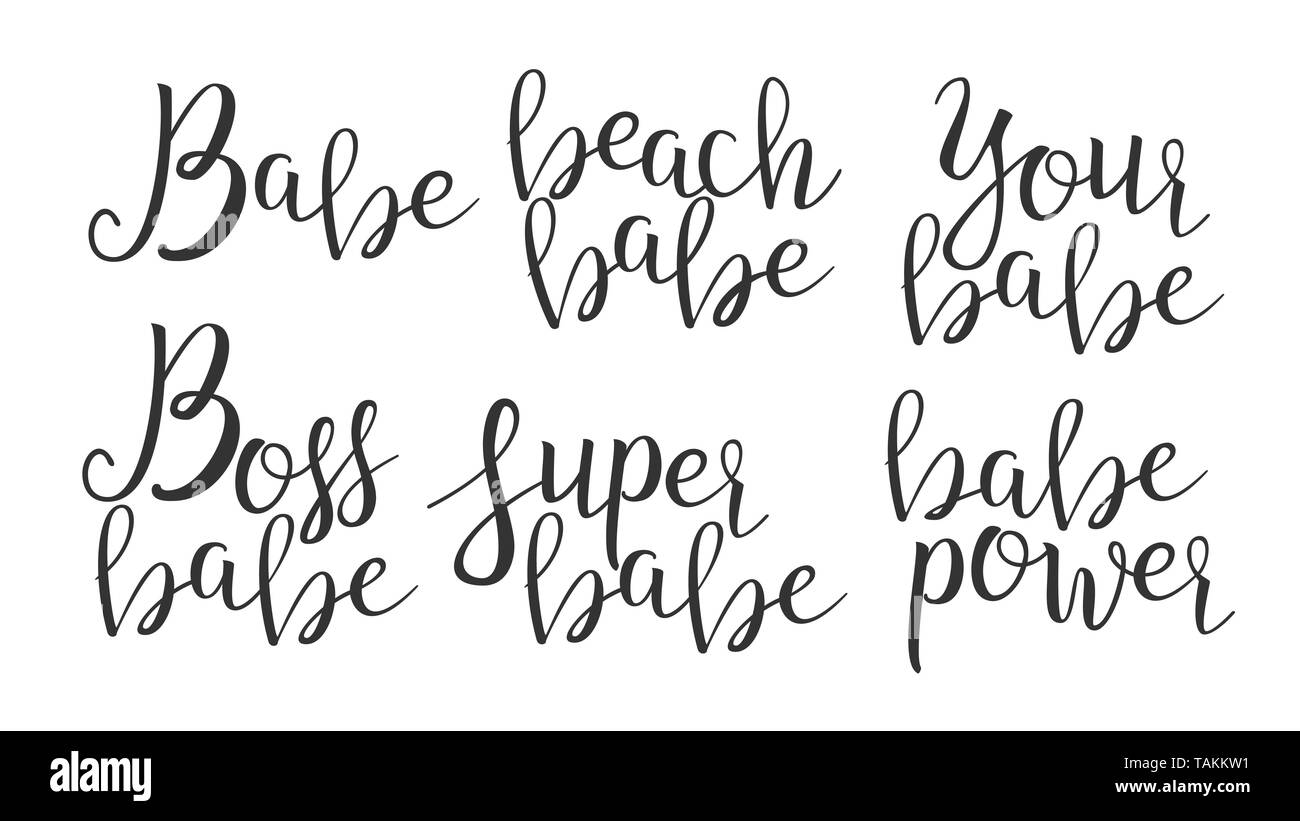 Babe
beach
babe
Your
babe
Boss
babe
super
babe
babe
power
alamy
Image ID: TAKKW1
www.alamy.com